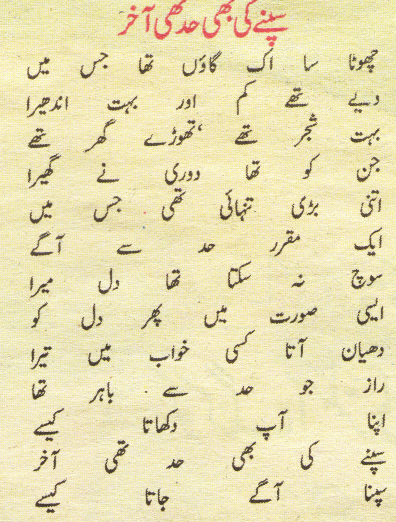 سپنے کی بھی حد تھی آخر
چھوٹا سا اک گاؤں تھا جس میں
دیے تھے کم اور بہت اندھیرا
بہت شجر تھے ، تھوڑے گھر تھے
جن کو تھا دوری نے گھیرا
اتنی بڑی تنہائی تھی جس میں
ایک مقرر حد سے آگے
سوچ نہ سکتا تھا دل میرا
ایسی صورت میں پھر دل کو
دھیان آتا کسی خواب میں تیرا
راز جو حد سے باہر تھا
اپنا آپ دکھاتا کیسے
سپنے کی بھی حد تھی آخر
سپنا آگے جاتا کیسے